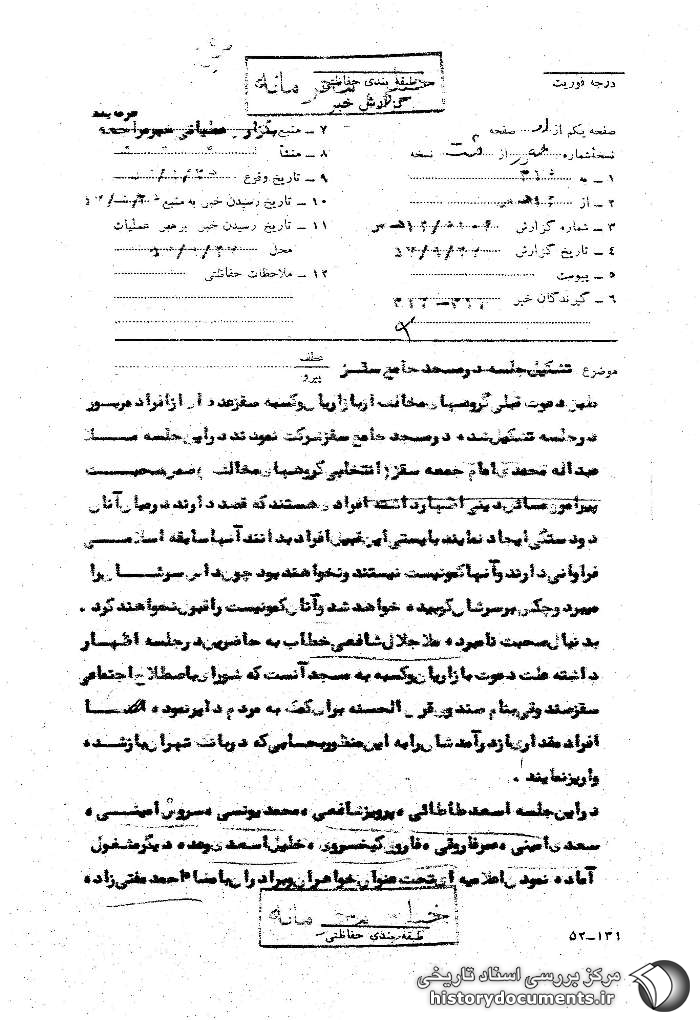 درجه فوریت
طبقه بندی حفاظتی
گزارش خبر
صفحه یکم از صفحه
نسخه شماره از نسخه
۱ ـ به ۳۱۵
۲ ـ از
۳ ـ شماره گزارش
۴ ـ تاریخ گزارش
۵ ـ پیوست
۶ ـ گیرندگان خبر ۳۱۱ـ۳۱۲
۷ ـ منبع
۸ ـ منشأ
۹ ـ تاریخ وقوع
۱۰ ـ تاریخ رسیدن خبر به منبع
۱۱ ـ تاریخ رسیدن خبر برهبر عملیات
محل
۱۲ ـ ملاحظات حفاظتی
موضوع تشکیل جلسه در مسجد جامع سقز
عطف
پیرو
طبق دعوت قبلی گروههای مخالف از بازاریان وکسبه سقز عده ای از افراد مزبور
در جلسه تشکیل شده در مسجد جامع سقز شرکت نمودند در این جلسه ملا
عبداله محمدی امام جمعه سقز (انتخابی گروههای مخالف) ضمن صحبت
پیرامون مسائل دینی اظهار داشته افرادی هستند که قصد دارند در میان آنان
دودستگی ایجاد نمایند بایستی این قبیل افراد بدانند آنها سابقه اسلامی
فراوانی دارند وآنها کمونیست نیستند ونخواهند بود چون داس سرشان را
میبرد وچکش برسرشان کوبیده خواهد شد وآنان کمونیست را قبول نخواهند کرد .
بدنبال صحبت نامبرده ملا جلال شافعی خطاب به حاضرین در جلسه اظهار
داشته علت دعوت بازاریان وکسبه به مسجد آنست که شورای باصطلاح اجتماعی
سقز صندوقی بنام صندوق قرض الحسنه برای کمک به مردم دایر نموده
افراد مقداری از درآمدشان را به این منظور بحسابی که در بانک تهران باز شده
واریز نمایند .
در این جلسه اسعد طاطائی ، پرویز شافعی ، محمد یونسی ، سروش امینی ،
سعدی امینی ، عمر فاروقی ، فاروق کیخسروی ، خلیل اسعدی وعده دیگر مشغول
آماده نمودن اعلامیه ای تحت عنوان خواهران وبرادران بامضاء احمد مفتی زاده
طبقه بندی حفاظتی
۵۲ـ۱۳۱
مرکز بررسی اسناد تاریخی
historydocuments.ir